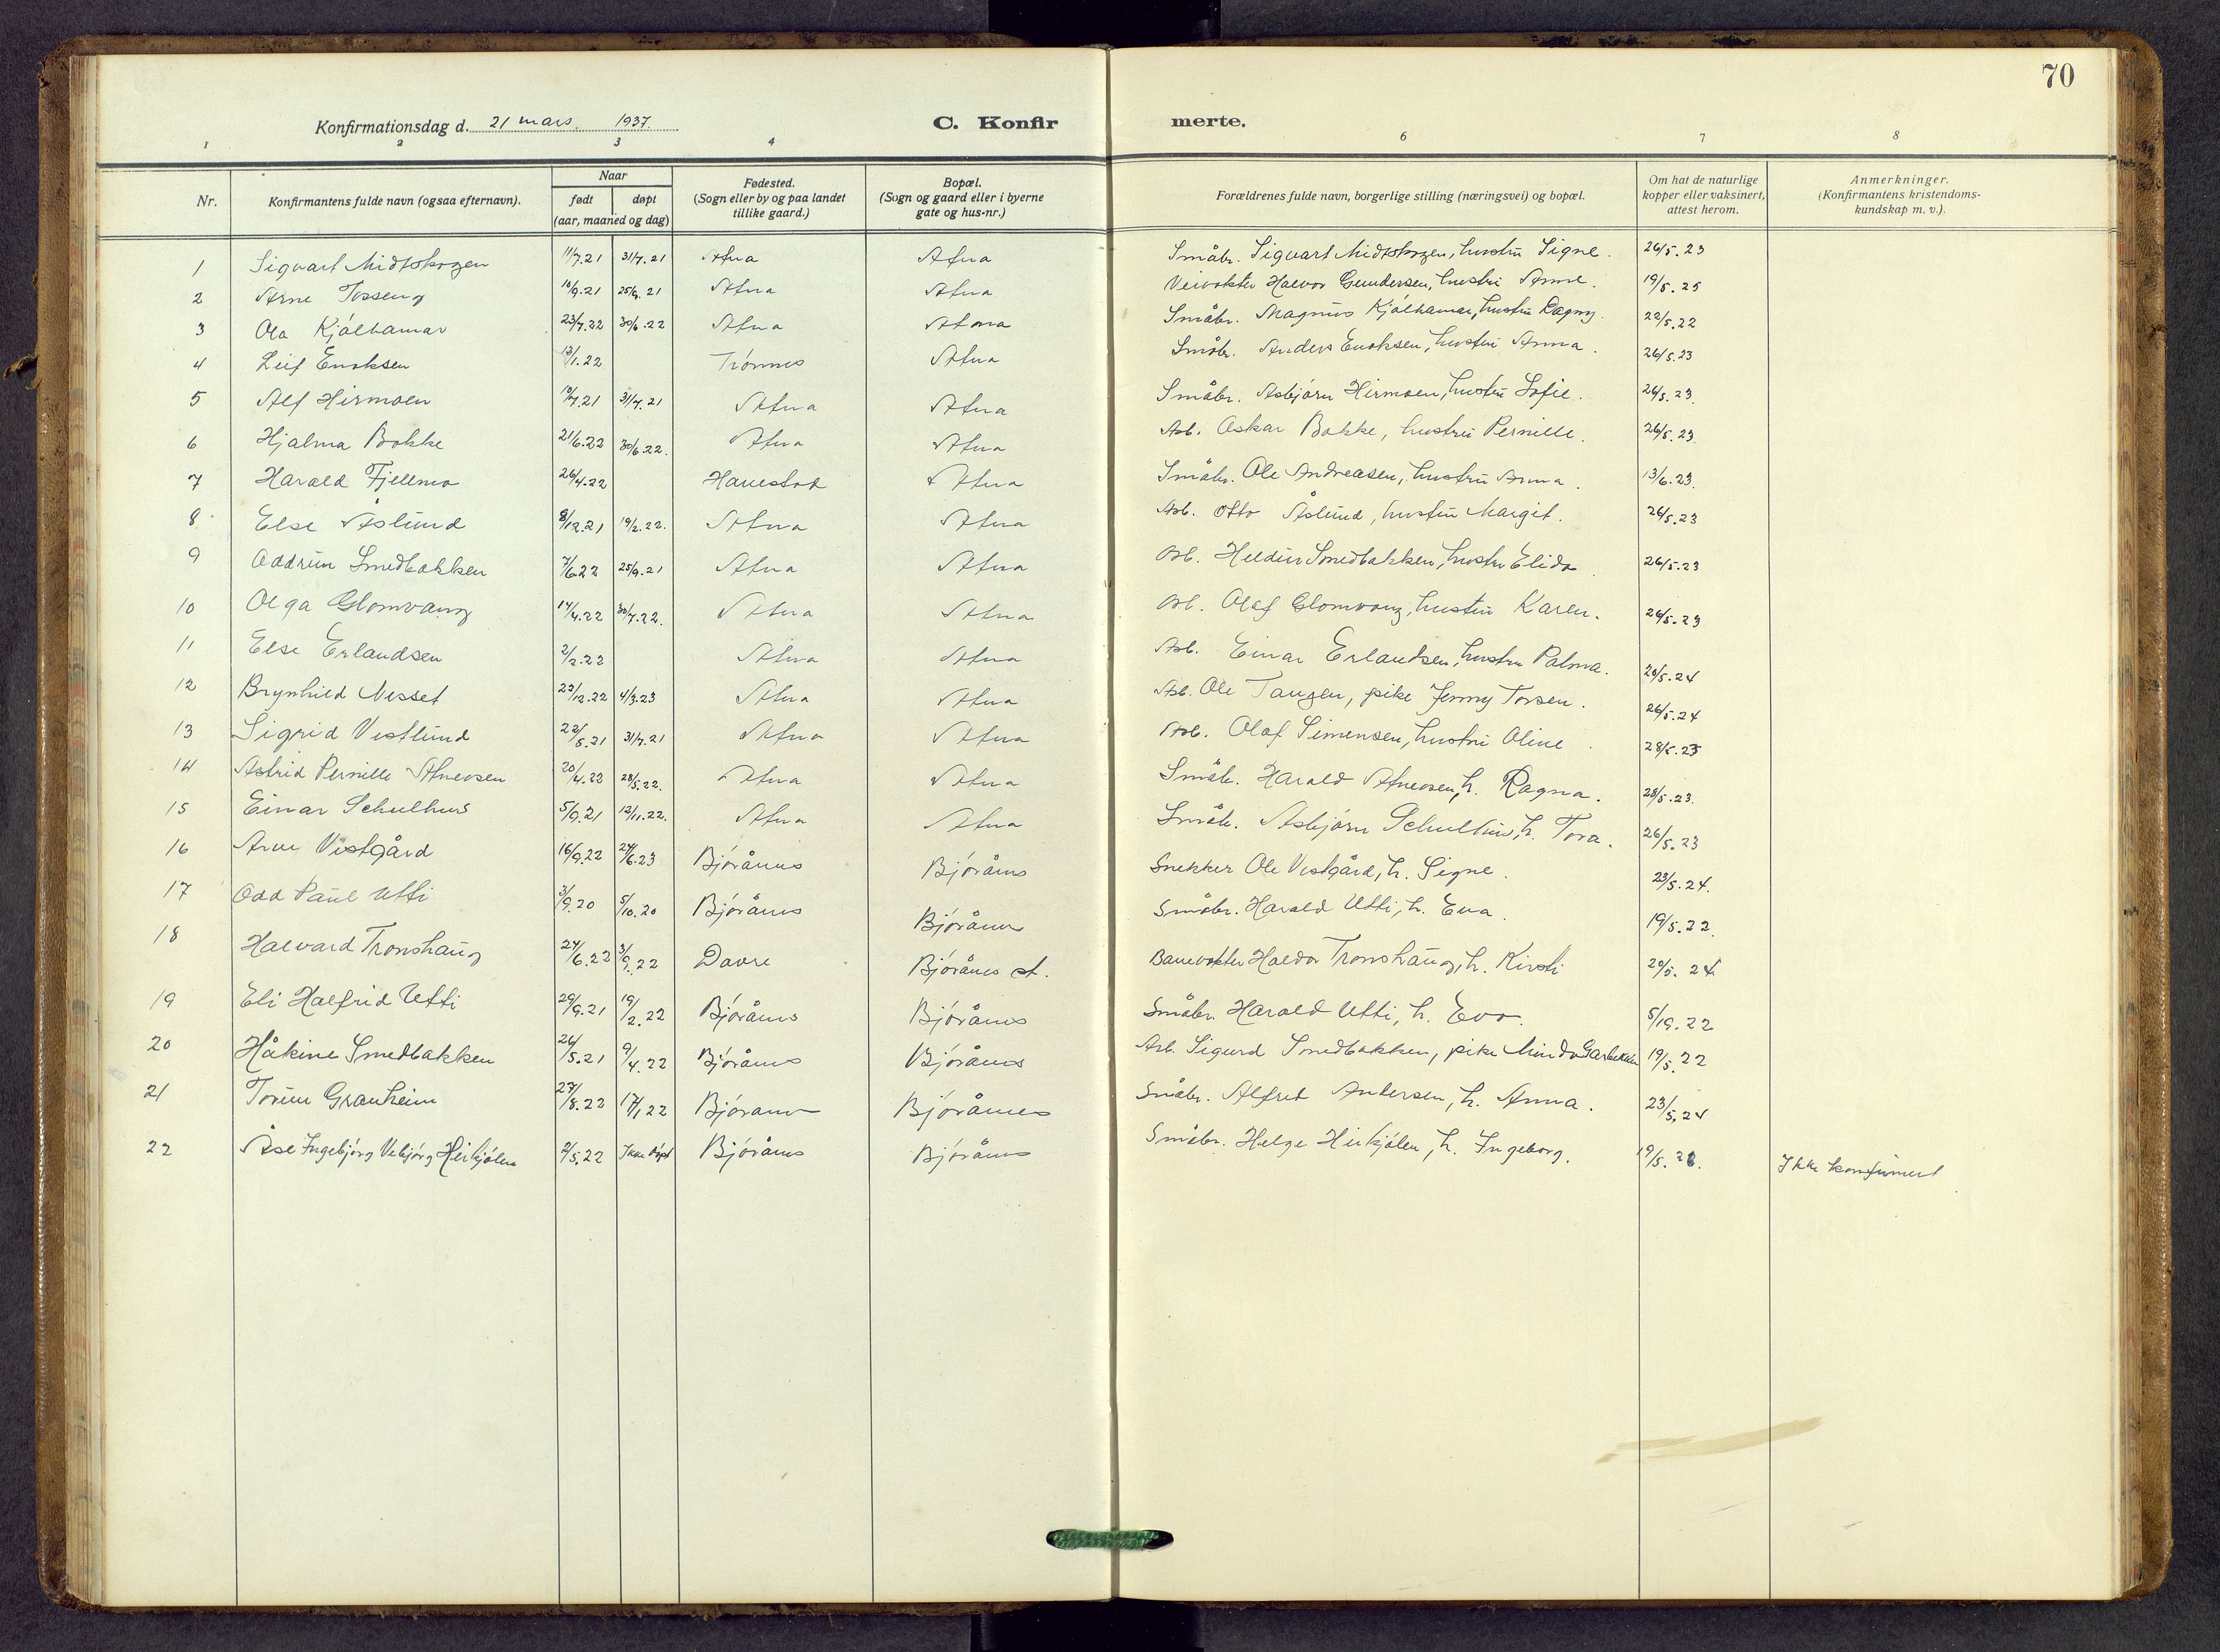 70
Konfirmationsdag d. 21 mars. 1937.
C. Konfirmerte.
1 2 3 4 6 7 8
Nr.
Konfirmantens fulde navn (ogsaa efternavn).
Naar
født døpt
(aar, maaned og dag)
Fødested.
(Sogn eller by og paa landet
tillike gaard.)
Bopæl.
(Sogn og gaard eller i byerne
gate og hus-nr.)
Forældrenes fulde navn, borgerlige stilling (næringsvei) og bopæl.
Om hat de naturlige
kopper eller vaksinert,
attest herom.
Anmerkninger.
(Konfirmantens kristendoms-
kundskap m. v.).
1 Sigvart Midtskogen 11/7.21 31/7.21 Atna Atna Småbr. Sigvart Midtskogen, hustru Signe. 26/5.23
2 Arne Tosseng 10/9.21 25/9.21 Atna Atna Veivokter Halvor Gundersen, hustru Anne. 19/5.25
3 Ola Kjølhamar 23/4.22 30/6.22 Atna Atna Småbr. Magnus Kjølhamar, hustru Dagny. 22/5.22
4 Leif Enoksen 13/1.22 Trønnes Atna Småbr. Anders Enoksen, hustru Anna. 26/5.23
5 Alf Hirmoen 10/7.21 31/7.21 Atna Atna Småbr. Asbjørn Hirmoen, hustru Sofie. 26/5.23.
6 Hjalma Bakke 21/6.22 30/6.22. Atna Atna Arb. Oskar Bakke, hustru Pernille. 26/5.23.
7 Harald Fjellmo 26/4.22 Hanestad Atna Småbr. Ole Andreasen, hustru Anna. 13/6.23.
8 Else Åslund 8/12.21 19/2.22. Atna Atna Arb. Otto Åslund, hustru Margit. 26/5.23
9 Oddrun Smedbakken 7/6.22 25/9.21 Atna Atna Arb. Heidur Smedbakken, hustru Elida. 26/5.23
10 Olga Glomvang 14/4.22 30/7.22. Atna Atna Arb. Olaf Glomvang, hustru Karen. 26/5.23
11 Else Erlandsen 2/2.22 Atna Atna Arb. Einar Erlandsen, hustru Palma. 20/5.24
12 Brynhild Nesset 22/12.22 4/3.23 Atna Atna Arb. Ole Tangen, pike Jenny Torsen. 26/5.24
13 Sigrid Vestlund 22/5.21 31/7.21 Atna Atna Arb. Olaf Simensen, hustru Oline. 28/5.25
14 Astrid Pernille Atneosen 20/4.22 28/5.22. Atna Atna Småbr. Harald Atneosen, h. Ragna. 28/5.23.
15 Einar Schulhus 5/9.21 12/11.22. Atna Atna Småbr. Asbjørn Schulhus, h. Tora. 26/5.23
16 Arne Vestgård 16/9.22 24/6.23 Bjørånes Bjørånes Snekker Ole Vestgård, h. Signe. 23/5.24.
17 Odd Paul Utti 3/9.20 5/10.20 Bjørånes Bjørånes Småbr. Harald Utti, h. Eva. 19/5.22.
18 Halvard Tronshaug 24/6.22 3/9.22 Dovre Bjørånes st. Banevokter Haldor Tronshaug, h. Kirsti 20/5.24
19 Eli Halfrid Utti 29/9.21 19/2.22 Bjørånes Bjørånes Småbr. Harald Utti, h. Eva. 5/19.22
20 Håkine Smedbakken 26/5.21 9/4.22 Bjørånes Bjørånes Arb. Sigurd Smedbakken, pike Minda 19/5.22
21 Torun Granheim 27/8.22 17/1.22 Bjørånes Bjørånes Småbr. Alfred Andersen, h. Anna. 23/5.24
22 Åse Ingebjørg Vebjørg Heirkjølen 2/5.22 Ikke døpt Bjørånes Bjørånes Småbr. Helge Heirkjølen, h. Ingeborg. 19/5.28. Ikke konfirmert